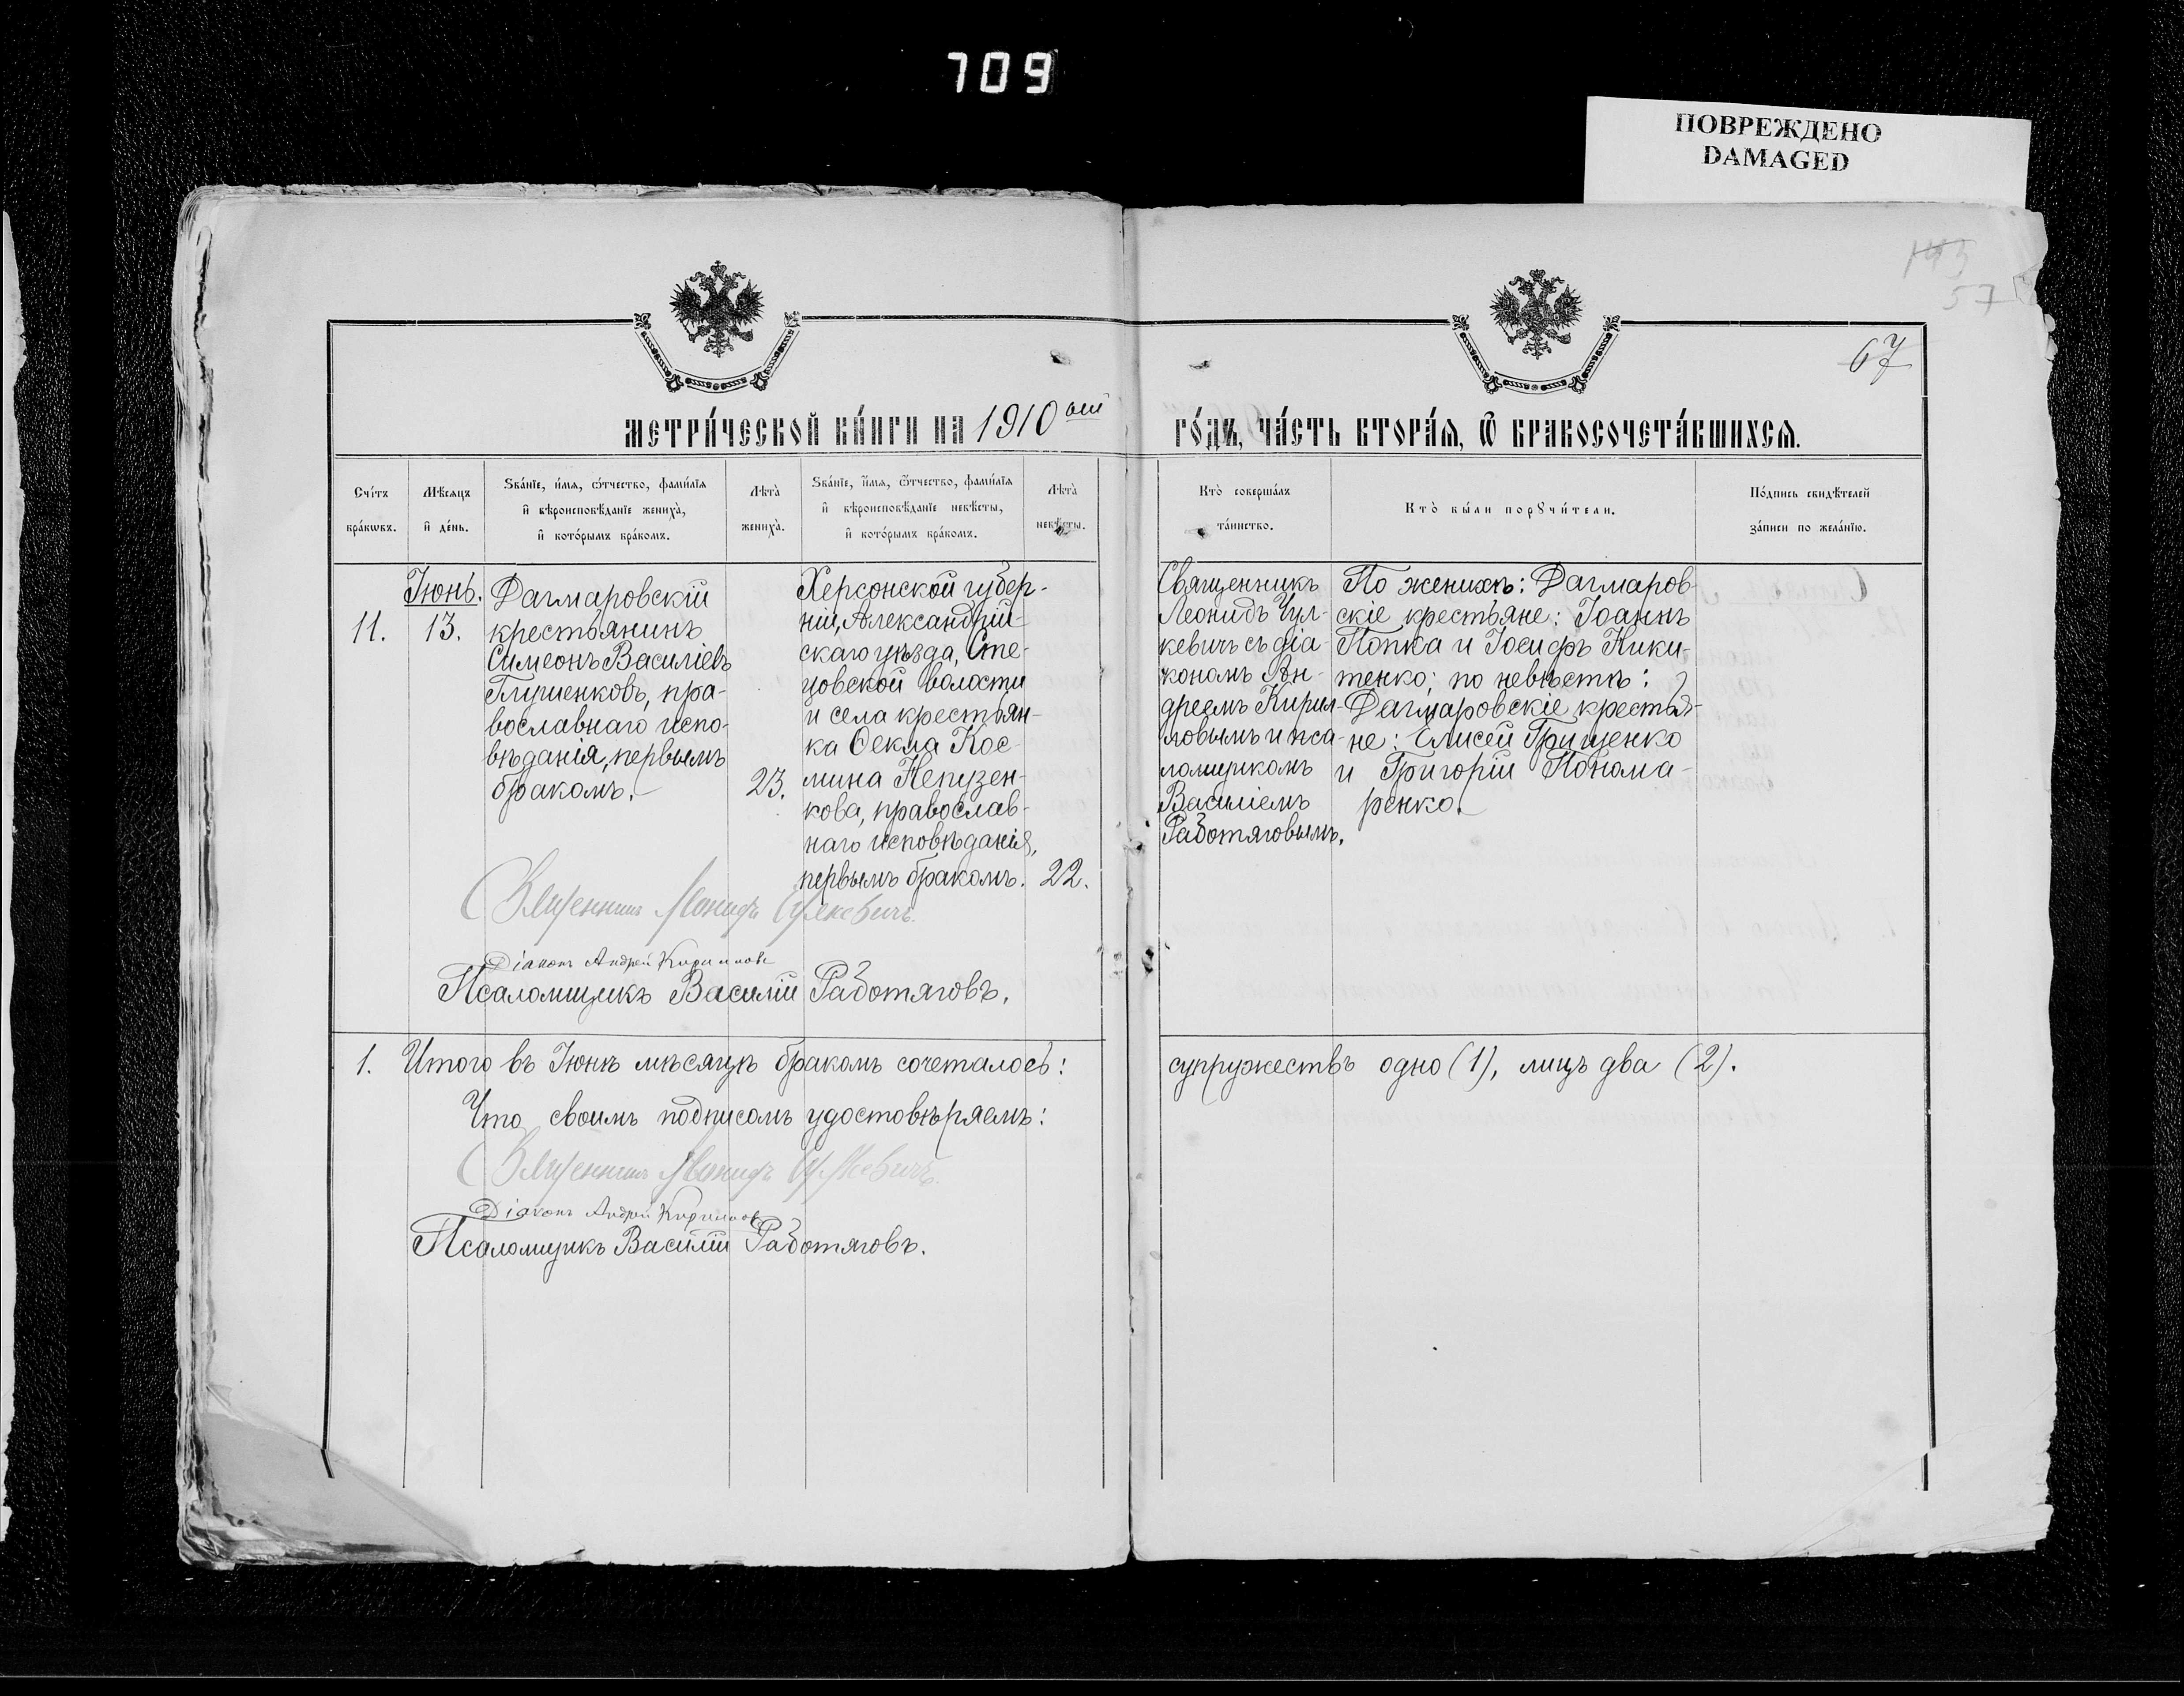 709
ПОВРЕЖДЕНО
DAMAGED
145
57
67
МЕТРИ́ЧЕСКОЙ КНИ́ГИ НА 1910 ый ГО́ДЪ, ЧА́СТЬ ВТОРА́Я, Ѽ БРАКОСОЧЕТА́ВШИХСЯ.
Сче́тъ бра́кѡвъ.
Мѣ́сяцъ и҆ де́нь.
Ѕва́нїе, и҆́мя, ѻ҆́тчество, фами́лїя
и҆ вѣроисповѣ́данїе жениха̀,
и҆ кото́рымъ бра́комъ.
Лѣта̀ жениха̀.
Ѕва́нїе, и҆́мя, ѻ҆́тчество, фами́лїя
и҆ вѣроисповѣ́данїе невѣ́сты,
и҆ кото́рымъ бра́комъ.
Лѣта̀ невѣ́сты.
Кто̀ соверша́лъ
та́инство.
Кто̀ бы́ли порꙋчи́тели.
По́дпись свидѣ́телей
за́писи по жела́нїю.
11.
Іюнь.
13.
Дагмаровскій
крестьянинъ
Симеонъ Василіевъ
Глушенковъ, пра-
вославнаго испо-
вѣданія, первымъ
бракомъ.
23.
Херсонской губер-
ніи, Александрій-
скаго уѣзда, Сте-
цовской волости
и села крестьян-
ка Ѳекла Кос-
мина Непузен-
кова, православ-
наго исповѣданія,
первымъ бракомъ.
22.
Священникъ
Леонидъ Чул-
кевичъ съ діа-
кономъ Ан-
дреемъ Кирил-
ловымъ и пса-
ломщикомъ
Василіемъ
Работяговымъ.
По женихѣ: Дагмаров-
скіе крестьяне: Іоаннъ
Попка и Іосифъ Ники-
тенко; по невѣстѣ:
Дагмаровскіе крестья-
не: Елисей Грищенко
и Григорій Понома-
ренко.
Священникъ Леонидъ Чулкевичъ.
Діаконъ Андрей Кирилловъ
Псаломщикъ Василій Работяговъ.
1. Итого въ Іюнѣ мѣсяцѣ бракомъ сочеталось: супружествъ одно (1), лицъ два (2).
Что своимъ подписомъ удостовѣряемъ:
Священникъ Леонидъ Чулкевичъ.
Діаконъ Андрей Кирилловъ
Псаломщикъ Василій Работяговъ.